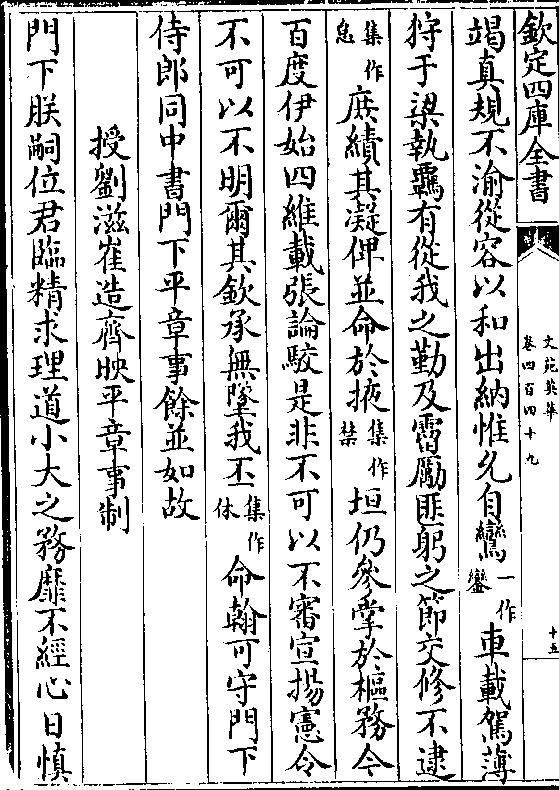 欽定四庫全書
文苑英華
卷四百四十九
十五
竭真規不渝從容以和出納惟允自鸞一作鑾車載駕薄
狩于梁執羈有從我之勤及霤勵匪躬之節交修不逮
集作怠庶績其凝俾並命於掖集作禁垣仍參掌於樞務今
百度伊始四維載張論駮是非不可以不審宣揚憲令
不可以不明爾其欽承無墜我丕集作休命翰可守門下
侍郎同中書門下平章事餘並如故
授劉滋崔造齊映平章事制
門下朕嗣位君臨精求理道小大之務靡不經心日慎